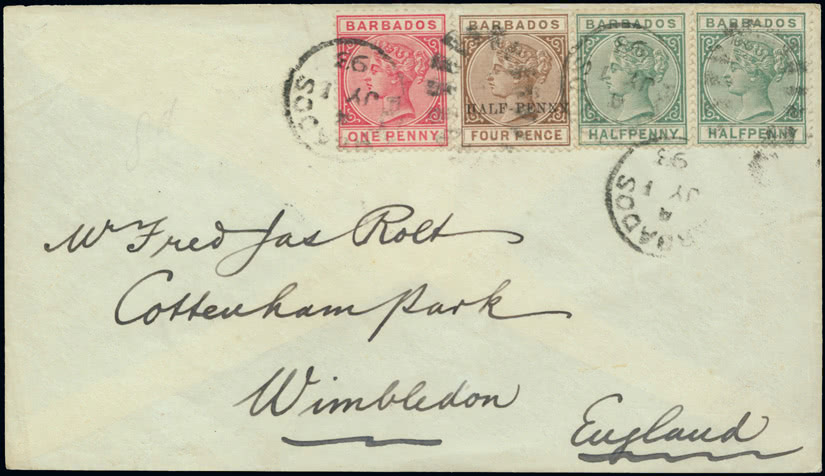 BARBADOS BARBADOS BARBADOS BARBADOS
HALF-PENNY
ONE PENNY FOUR PENCE HALFPENNY HALFPENNY
BARBADOS
A
JY 1
93
BARBADOS
A
JY 1
93
Mr Fred Jas Rolt
Cottenham Park
Wimbledon
England